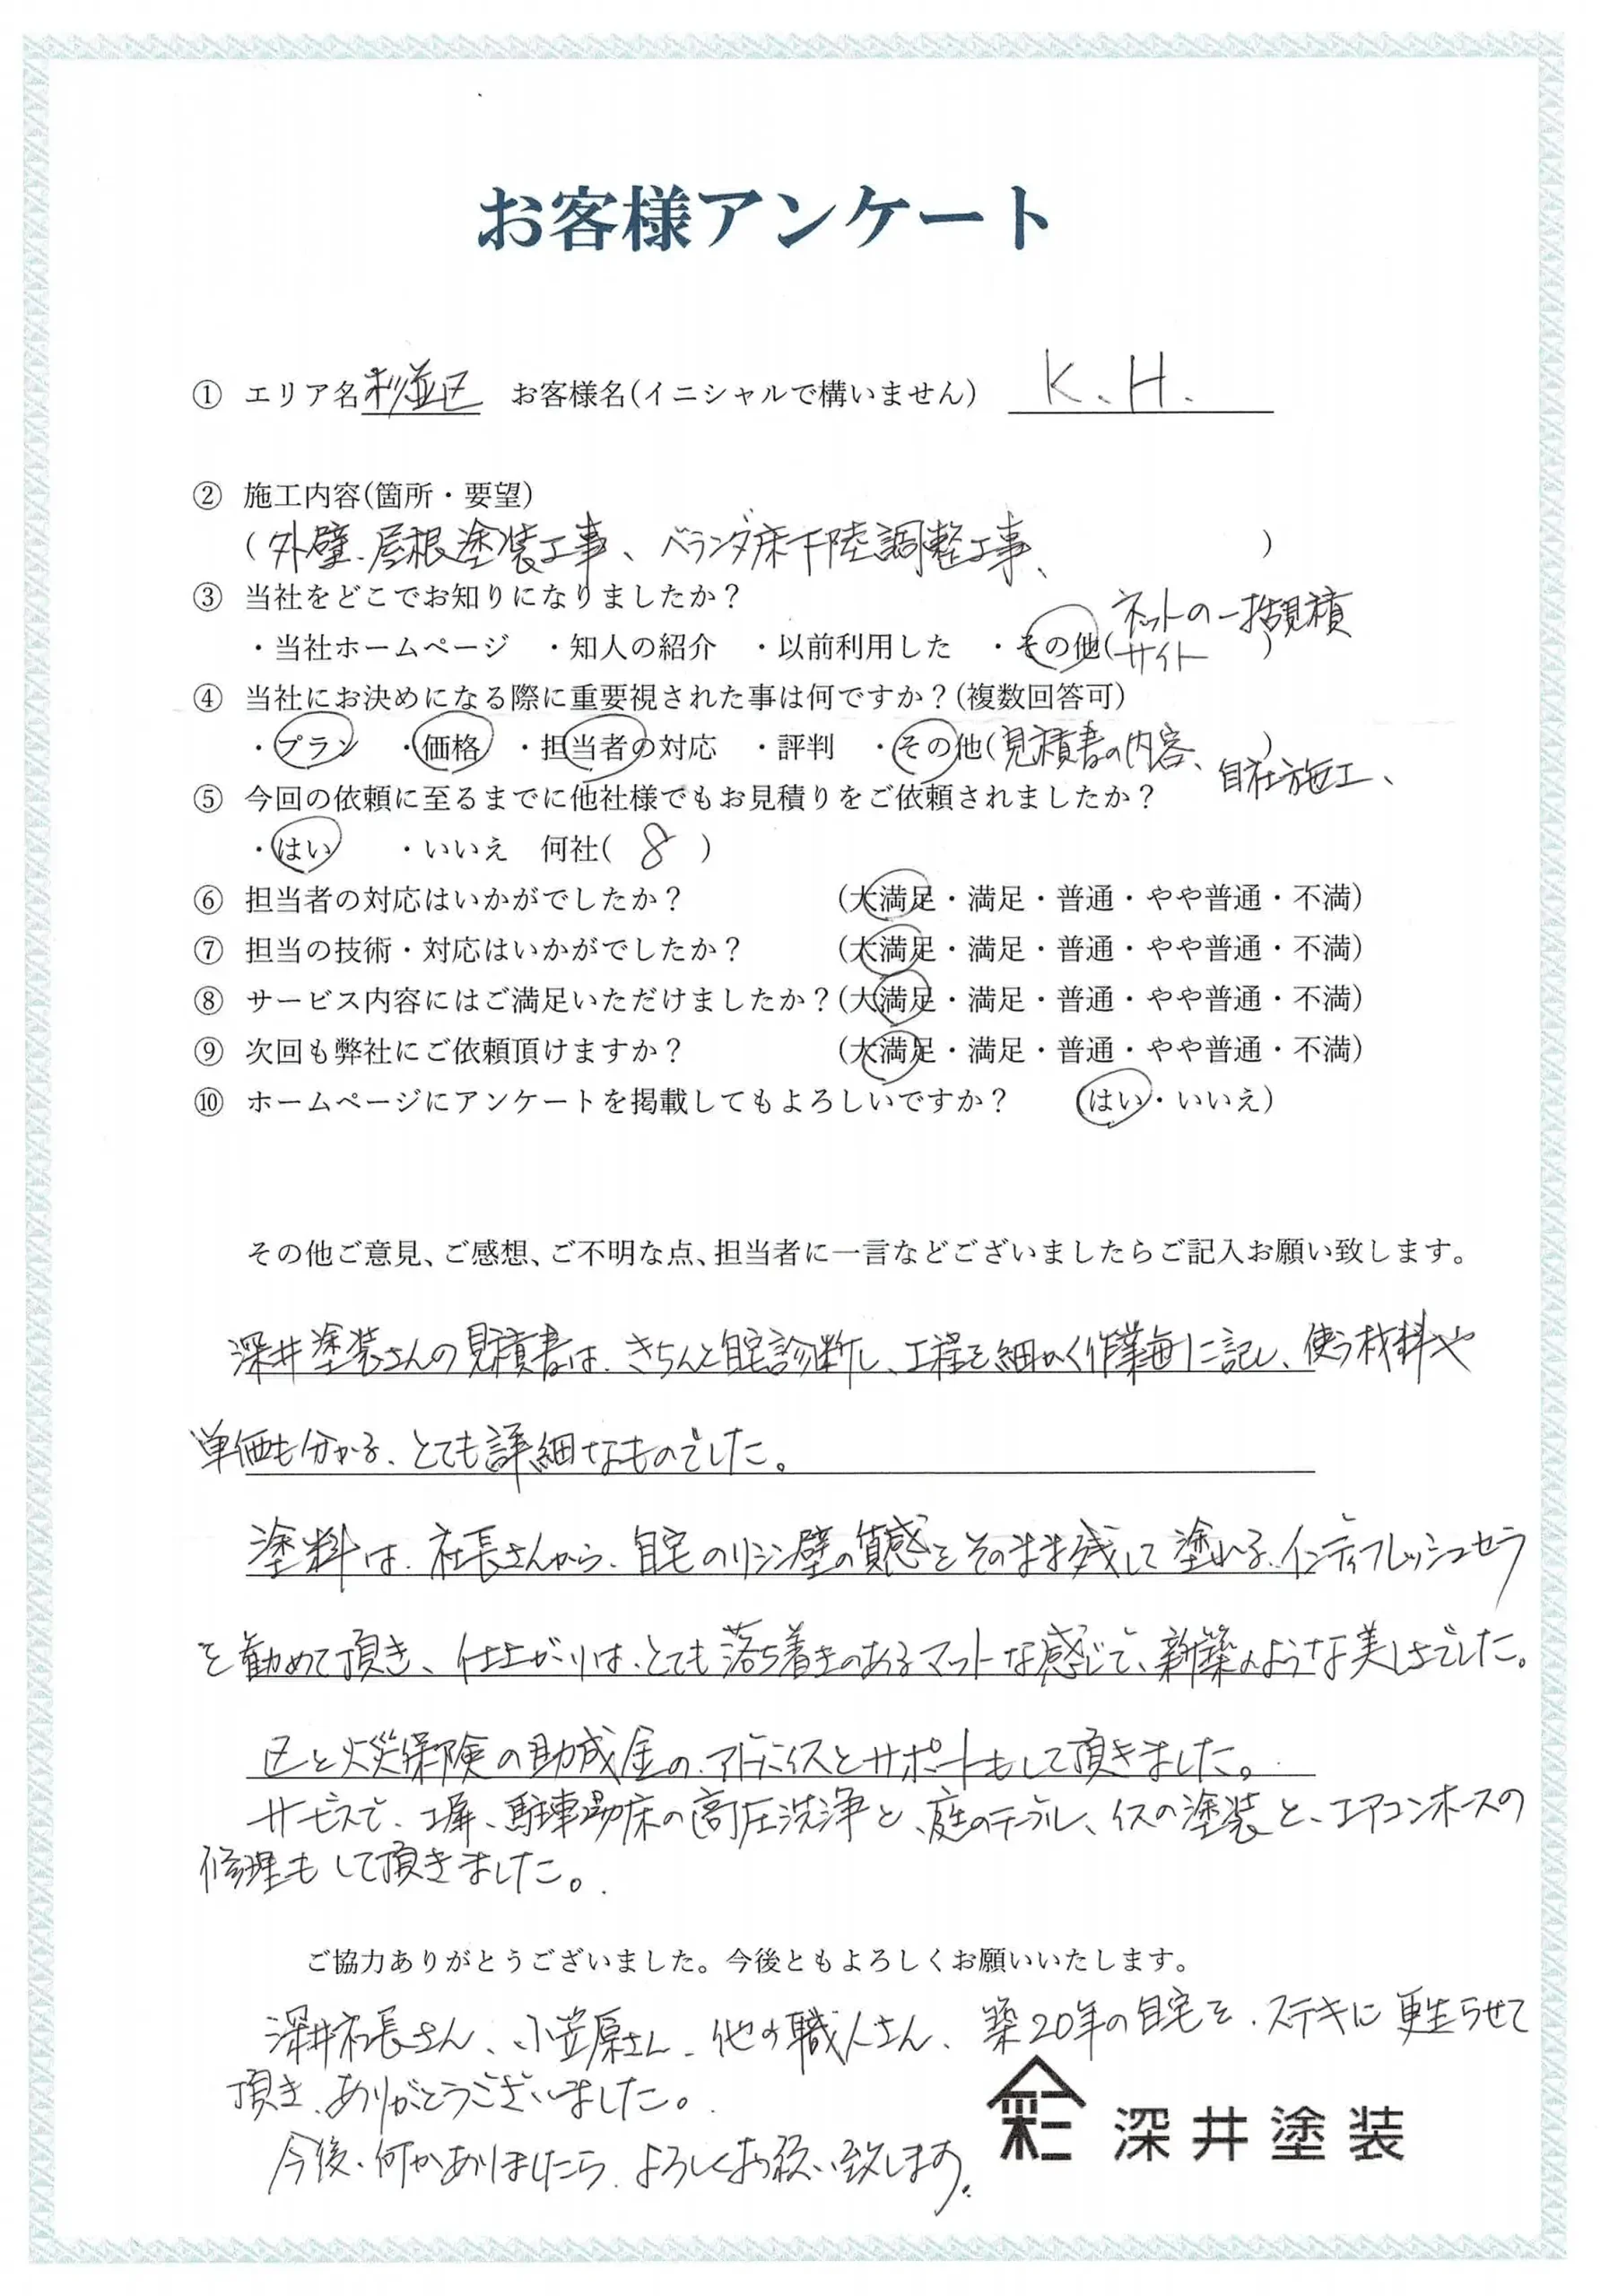 お客様アンケート
① エリア名 杉並区 お客様名(イニシャルで構いません) K.H.
② 施工内容(箇所・要望)
(外壁、屋根塗装工事、ベランダ床不陸調整工事、)
③ 当社をどこでお知りになりましたか？
・当社ホームページ ・知人の紹介 ・以前利用した ・その他(ネットの一括見積サイト)
④ 当社にお決めになる際に重要視された事は何ですか？(複数回答可)
・プラン ・価格 ・担当者の対応 ・評判 ・その他(見積書の内容、自社施工、)
⑤ 今回の依頼に至るまでに他社様でもお見積りをご依頼されましたか？
・はい ・いいえ 何社( 8 )
⑥ 担当者の対応はいかがでしたか？ (大満足・満足・普通・やや普通・不満)
⑦ 担当の技術・対応はいかがでしたか？ (大満足・満足・普通・やや普通・不満)
⑧ サービス内容にはご満足いただけましたか？(大満足・満足・普通・やや普通・不満)
⑨ 次回も弊社にご依頼頂けますか？ (大満足・満足・普通・やや普通・不満)
⑩ ホームページにアンケートを掲載してもよろしいですか？ (はい・いいえ)
その他ご意見、ご感想、ご不明な点、担当者に一言などございましたらご記入お願い致します。
深井塗装さんの見積書は、きちんと自宅診断し、工程を細かく作業毎に記し、使う材料や
単価も分かる、とても詳細なものでした。
塗料は、社長さんから、自宅のリシン壁の質感をそのまま残して塗れる、インディフレッシュセラ
を勧めて頂き、仕上がりは、とても落ち着きのあるマットな感じで、新築のような美しさでした。
区と火災保険の助成金の、アドバイスとサポートもして頂きました。
サービスで、塀、駐車場床の高圧洗浄と、庭のテーブル、イスの塗装と、エアコンホースの
修理もして頂きました。
ご協力ありがとうございました。今後ともよろしくお願いいたします。
深井社長さん、小笠原さん、他の職人さん、築20年の自宅を、ステキに更生らせて
頂き、ありがとうございました。
今後、何かありましたら、よろしくお願い致します。
深井塗装